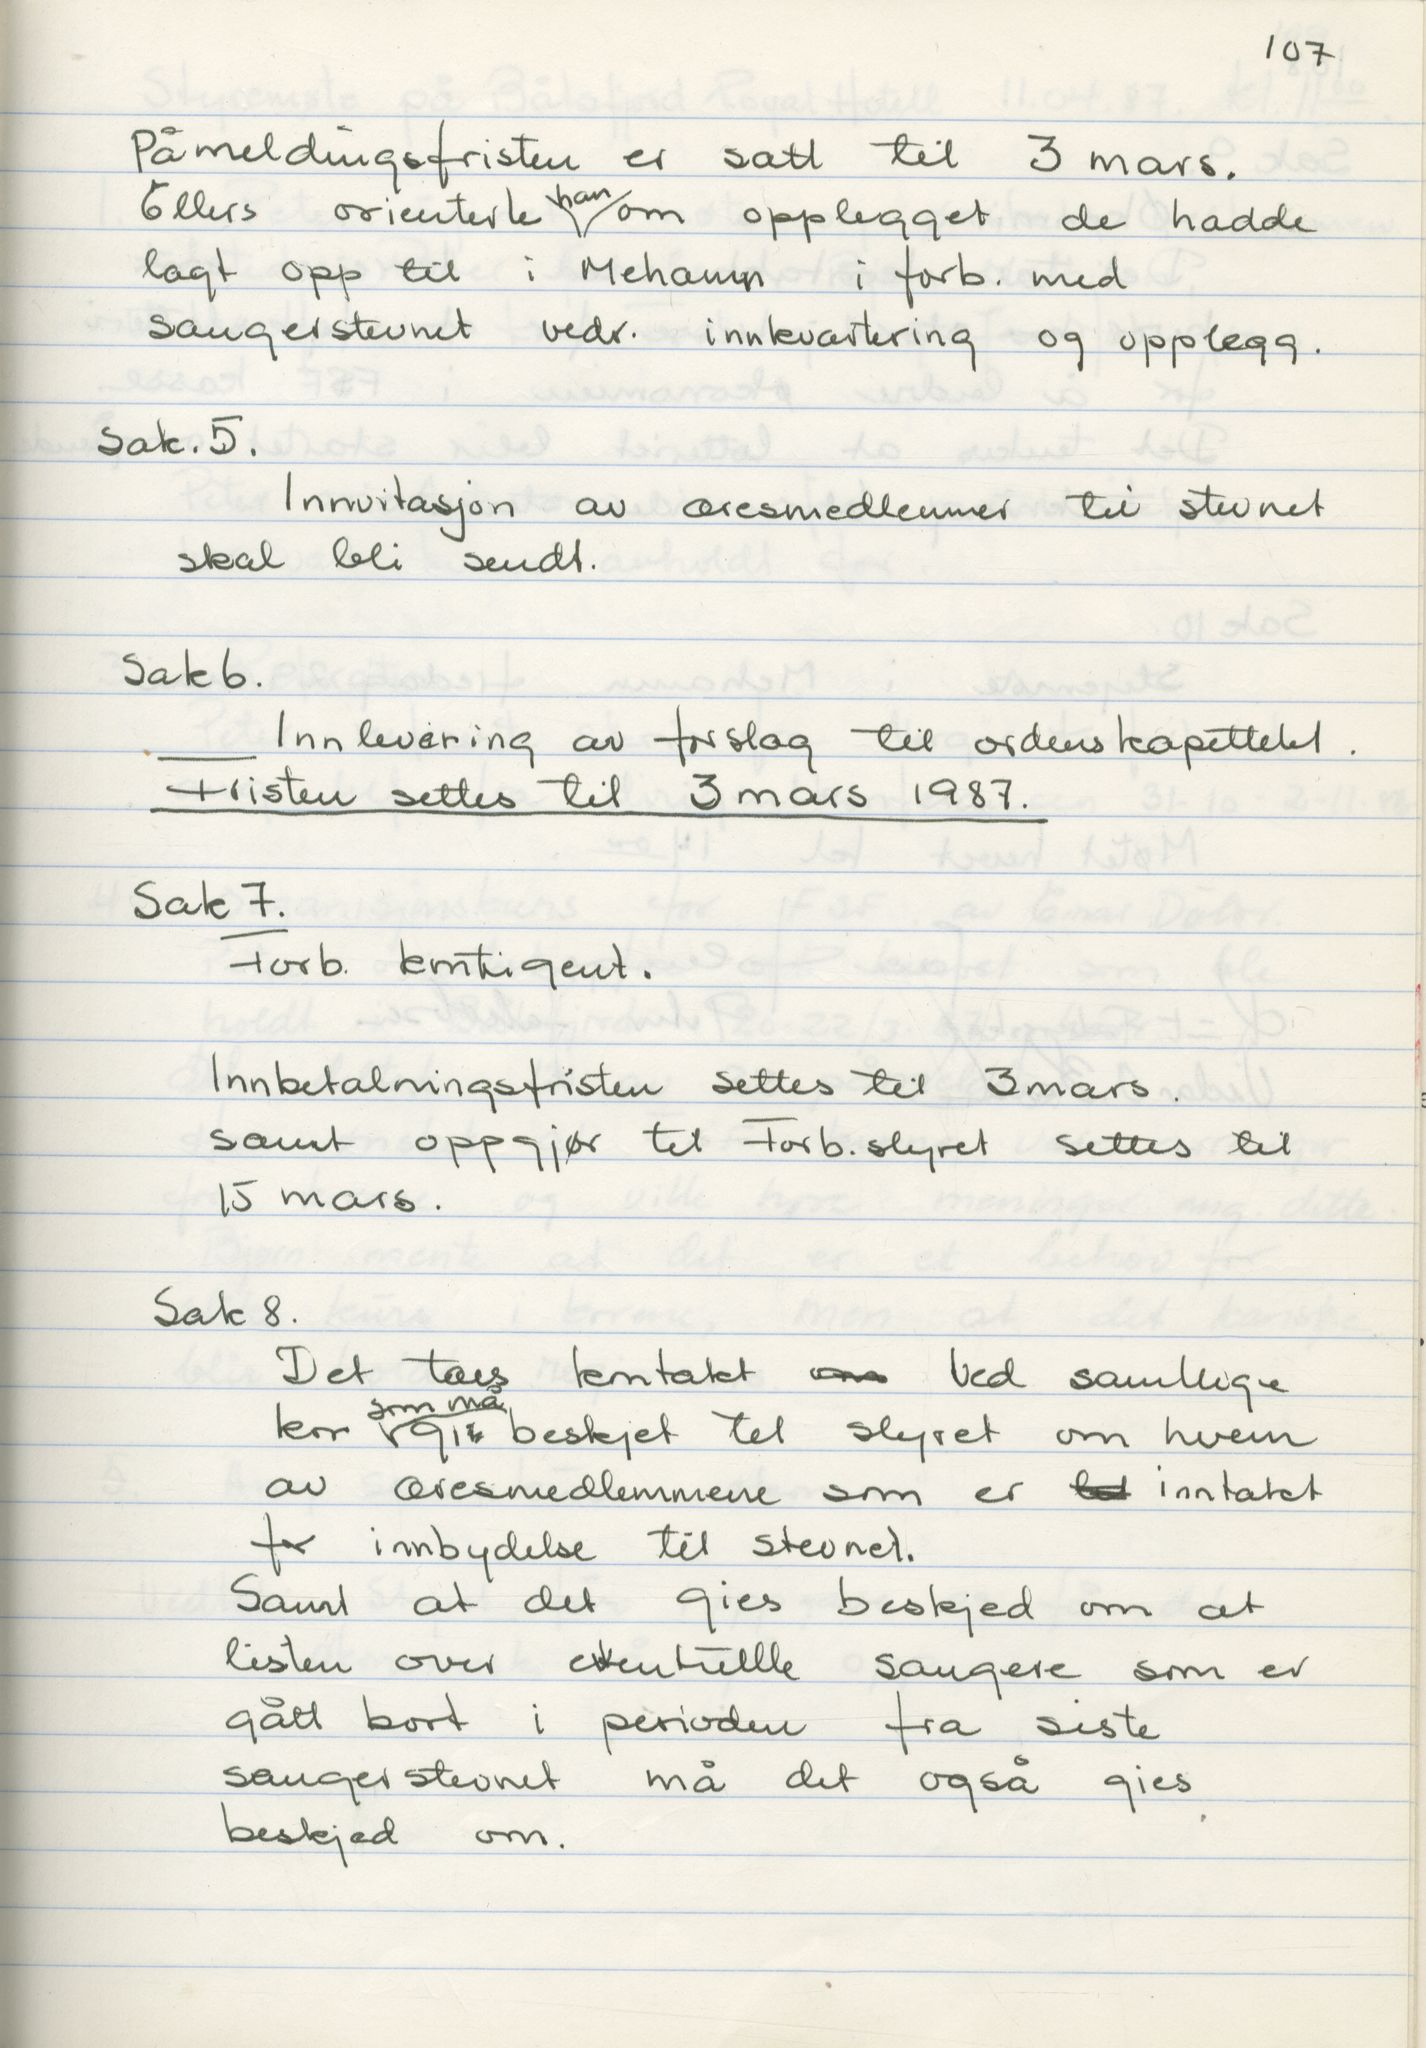 107
Påmeldingsfristen er satt til 3 mars.
Ellers orienterte han om opplegget de hadde
lagt opp til i Mehamn i forb. med
sangerstevnet vedr. innkvartering og opplegg.
Sak. 5.
Innvitasjon av æresmedlemmer til stevnet
skal bli sendt.
Sak 6.
Innlevering av forslag til ordenskapittelet.
Fristen settes til 3 mars 1987.
Sak 7.
Forb. kontigent.
Innbetalningsfristen settes til 3 mars.
samt oppgjør til Forb. styret settes til
15 mars.
Sak 8.
Det taes kontakt ved samtlige
kor som må gi beskjet til styret om hvem
av æresmedlemmene som er inntatet
for innbydelse til stevnet.
Samt at det gies beskjed om at
listen over eventuelle sangere som er
gått bort i perioden fra siste
sangerstevnet må det også gies
beskjed om.